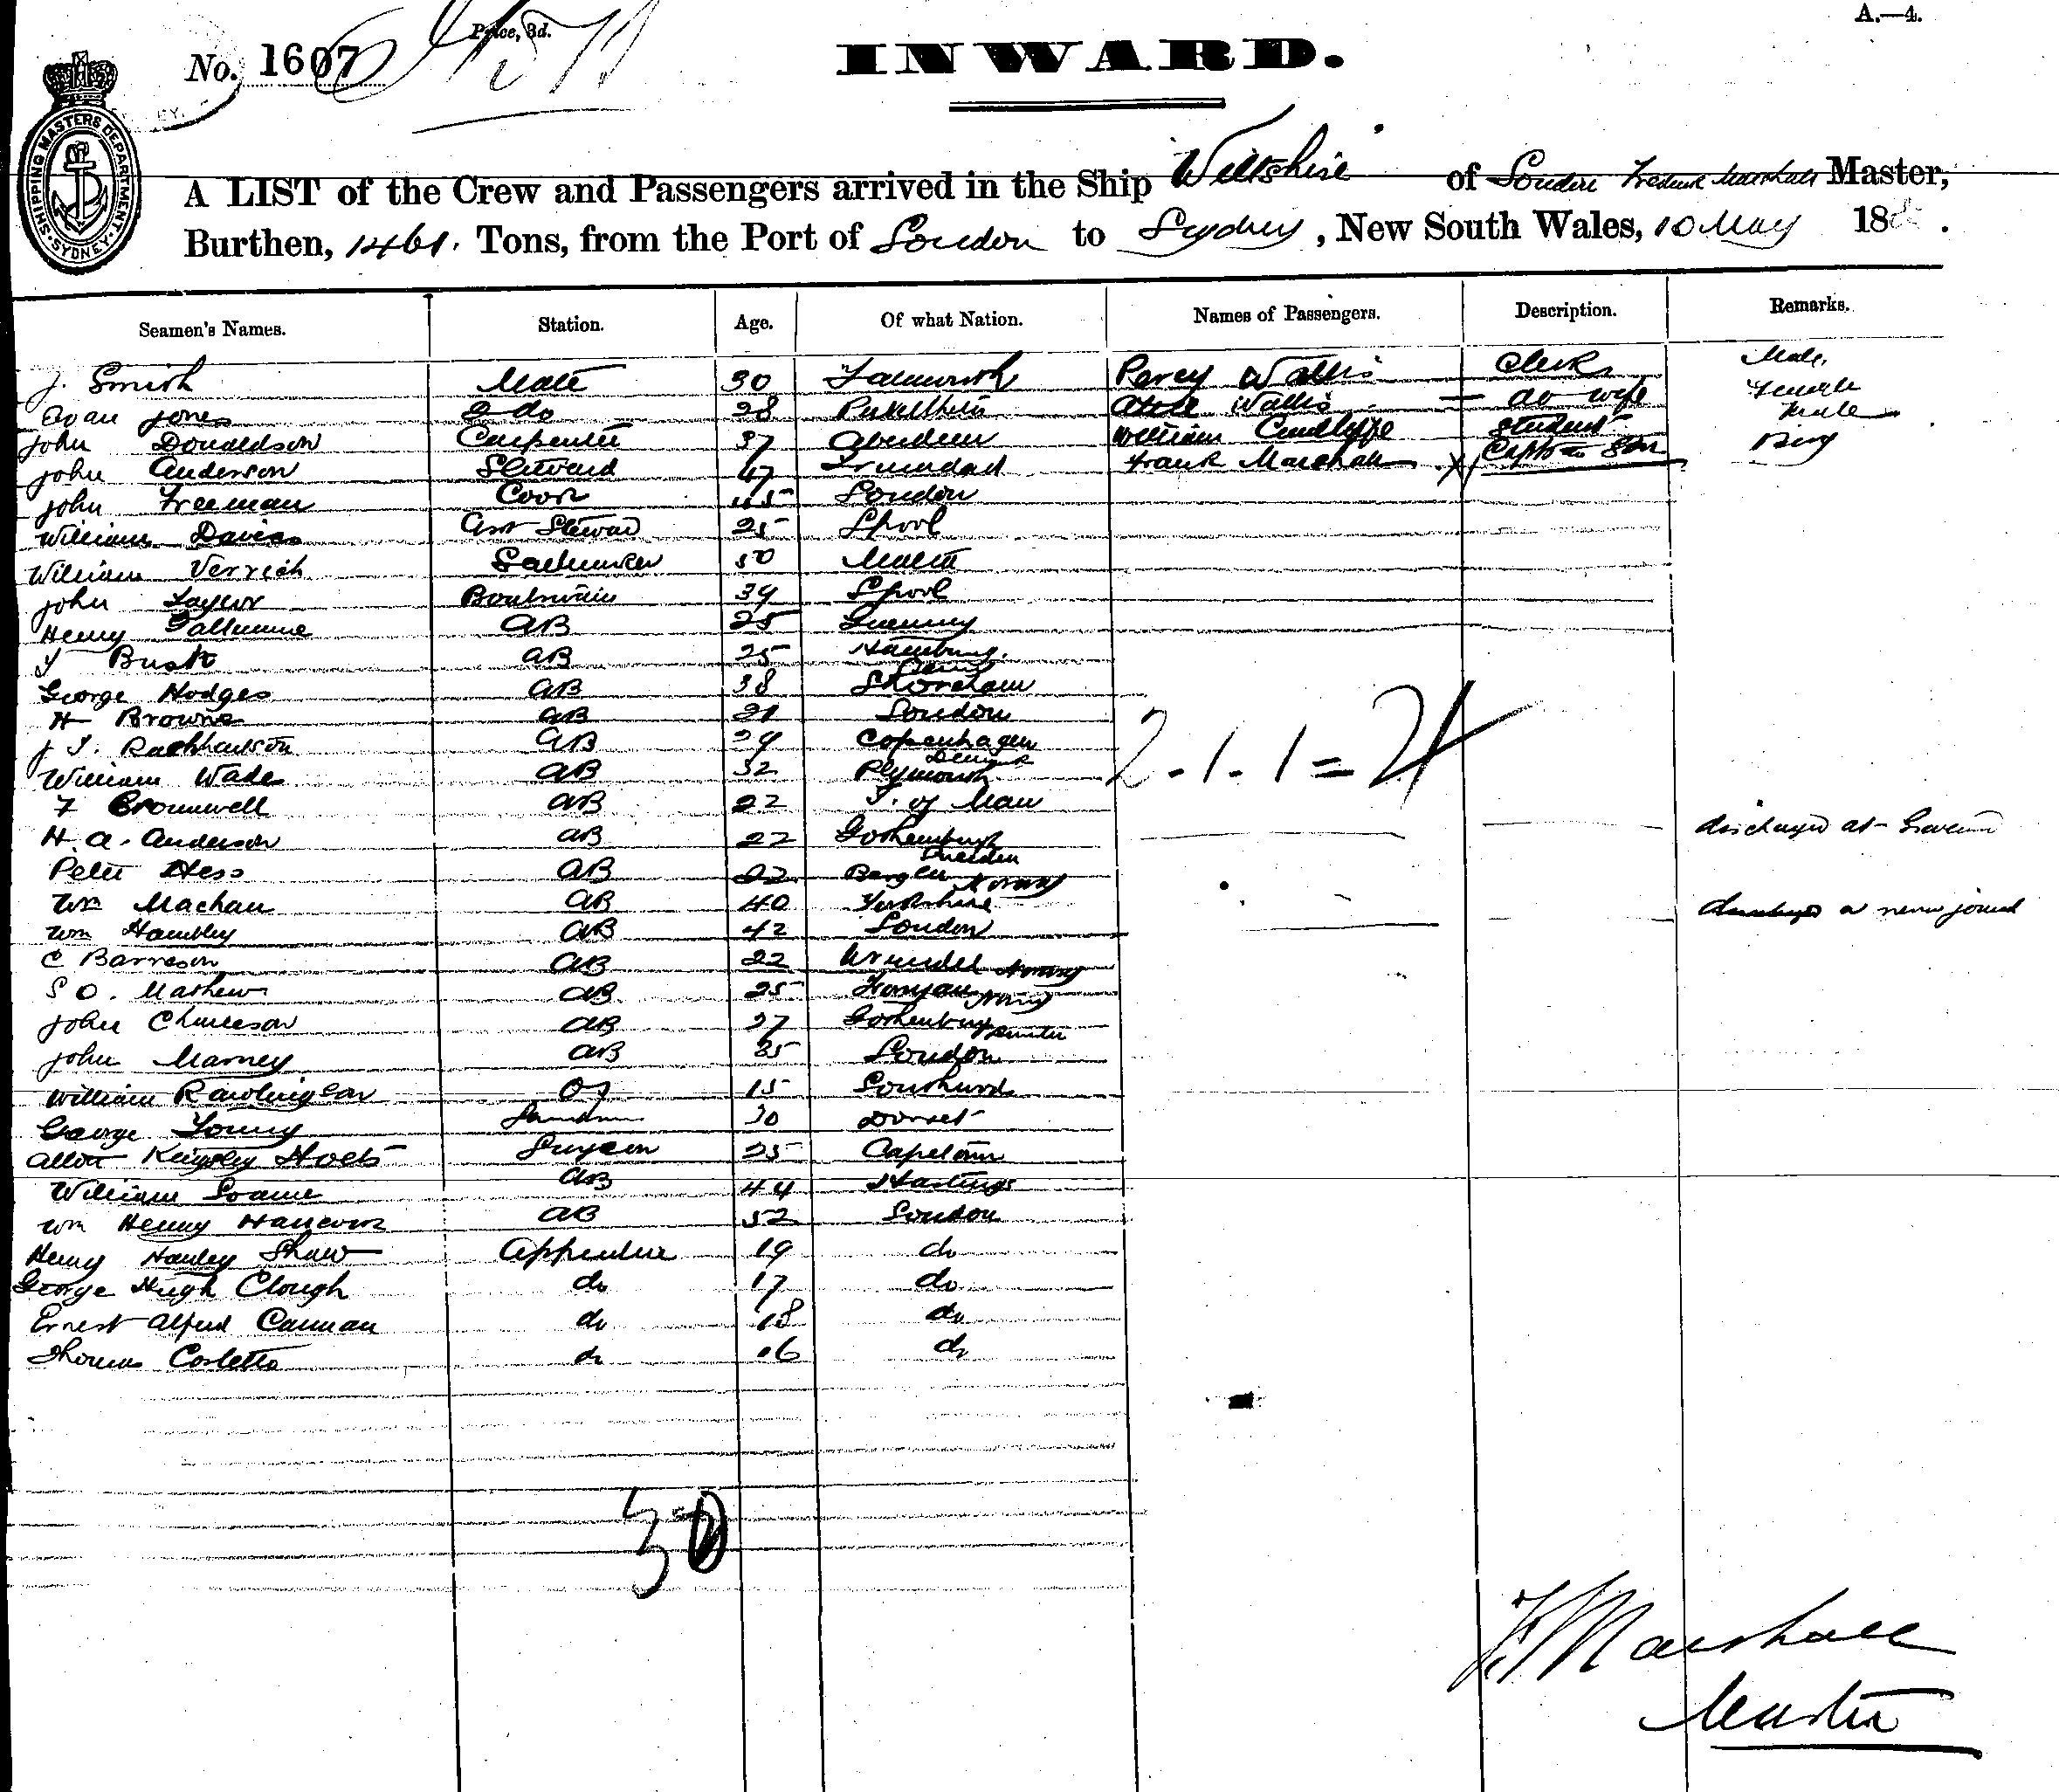 A.—4.
Price, 3d.
No. 1607
INWARD.
SHIPPING MASTERS DEPARTMENT. SYDNEY.
A LIST of the Crew and Passengers arrived in the Ship Wiltshire of London Frederick Marshall Master,
Burthen, 1461. Tons, from the Port of London to Sydney, New South Wales, 10 May 188 .
Seamen's Names. Station. Age. Of what Nation. Names of Passengers. Description. Remarks.
J. Smith Mate 30 Falmouth Percy Wallis Clerk Male
Evan Jones 2 do 28 Wallis do wife Female
John Donaldson Carpenter 37 Aberdeen William Student Male
John Anderson Steward 47 Trinidad Frank Marshall Capts Son
John Freeman Cook 45 London
William Davies Asst Steward 25 Lpool
William Verrich Sailmaker 50 Malta
John Taylor Boatswain 39 Lpool
Henry AB 25
Busk AB 25 Hamburg
Germy
George Hodges AB 38 Shoreham
H Browne AB 21 London
J. AB 29 Copenhagen
Denmark
William Wade AB 32 Plymouth
2.1.1=4
F Cromwell AB 22 I. of Man
H. A. Anderson AB 22 Gothenburgh discharged at
Sweden
Peter Hess AB 22 Bergen Norway
Wm Machan AB 40 Yorkshire joined
Wm Hambley AB 42 London
C Barreson AB 22 Arundel Norway
S O. Mathew AB 25 Norway
John AB 27 Gothenburg
John Marney AB 35 London
William Rawlingson OS 15
George Young 30 Dorset
Kingsley Surgeon 25 Capetown
William Soame AB 44 Hastings
Wm Henry Hancock AB 52 London
Henry Hanley Shaw Apprentice 19 do
George Hugh Clough do 17 do
Ernest Alfred Canman do 18 do
Thomas Corletto do 16 do
F. Marshall
Master